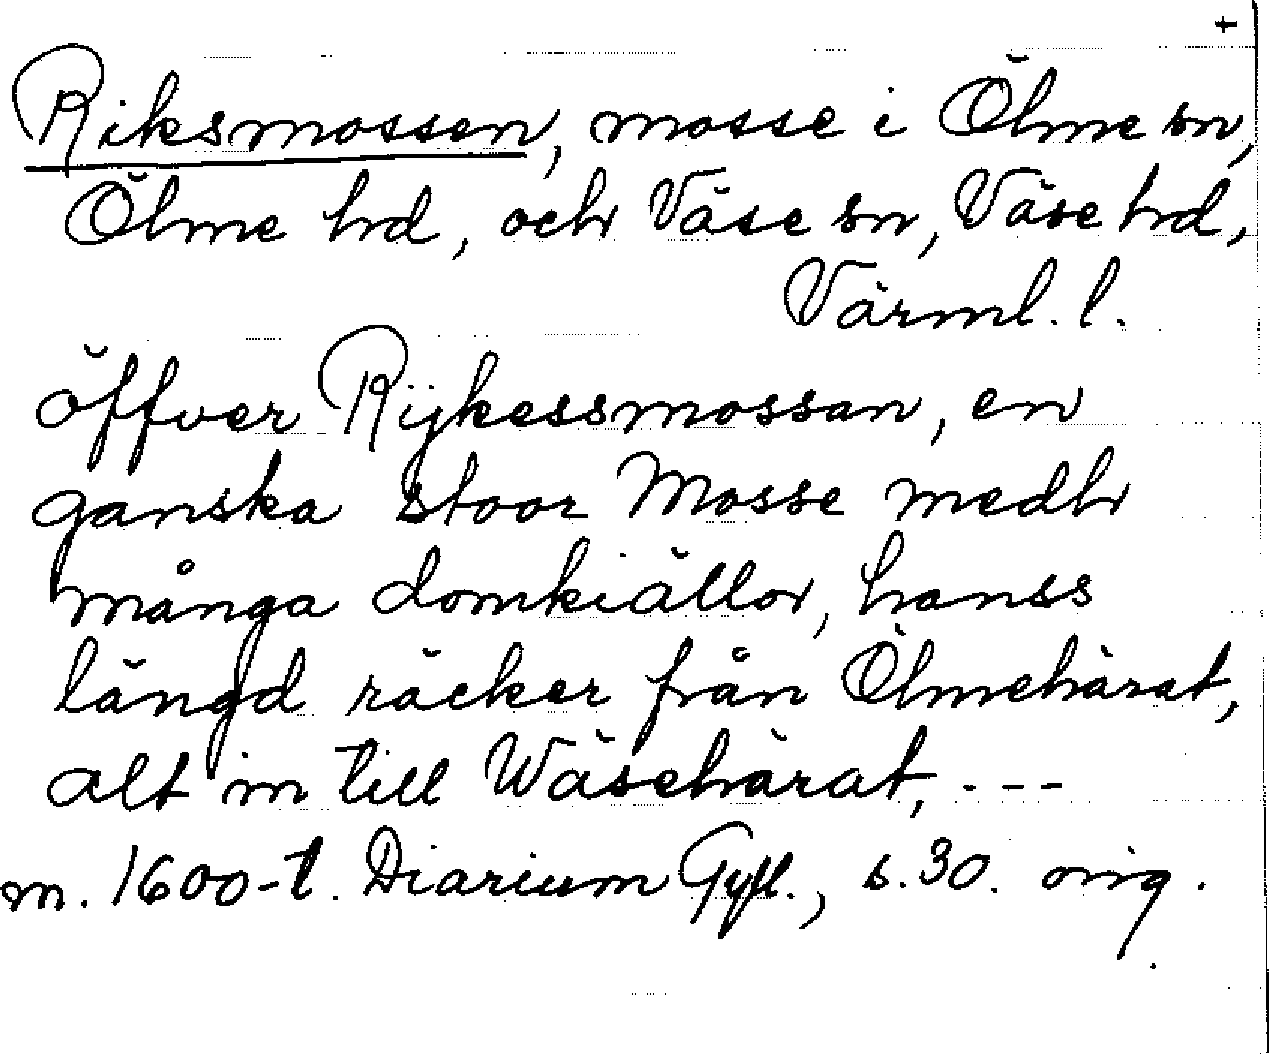 +
Riksmossen, mosse i Ölme sn,
Ölme hrd, och Väse sn, Väse hrd,
Värml. l.
öffver Rijkessmossan, en
ganska stoor Mosse medh
många domkiällor, hanss
längd räcker från Ölmehärat,
alt in till Wäsehärat, ---
m. 1600-t. Diarium Gyll., s. 30. orig.